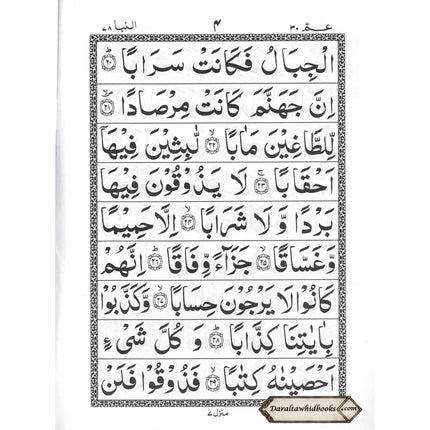 النبا ٧٨ ٤ عمّ ٣٠
الْجِبَالُ فَكَانَتْ سَرَابًا ﴿٢٠﴾
اِنَّ جَهَنَّمَ كَانَتْ مِرْصَادًا ﴿٢١﴾
لِّلطَّاغِيْنَ مَاٰبًا ﴿٢٢﴾ لّٰبِثِيْنَ فِيْهَاۤ
اَحْقَابًا ﴿٢٣﴾ لَا يَذُوْقُوْنَ فِيْهَا
بَرْدًا وَّ لَا شَرَابًا ﴿٢٤﴾ اِلَّا حَمِيْمًا
وَّ غَسَّاقًا ﴿٢٥﴾ جَزَآءً وِّفَاقًا ﴿٢٦﴾ اِنَّهُمْ
كَانُوْا لَا يَرْجُوْنَ حِسَابًا ﴿٢٧﴾ وَّ كَذَّبُوْا
بِاٰيٰتِنَا كِذَّابًا ﴿٢٨﴾ وَ كُلَّ شَیْءٍ
اَحْصَيْنٰهُ كِتٰبًا ﴿٢٩﴾ فَذُوْقُوْا فَلَنْ
منزل ٧
Daraltawhidbooks.com